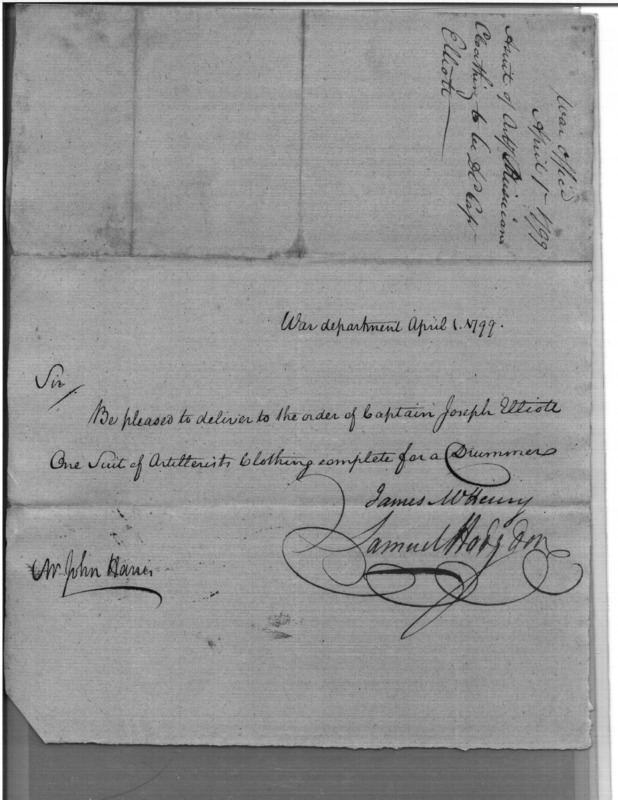 War Office
April 1st 1799
A suit of Arty Musicians
Cloathing to be Dd Cap
Elliott
War department April 1. 1799.
Sir
Be pleased to deliver to the order of Captain Joseph Elliott
One Suit of Artillerists Clothing complete for a Drummer
James McHenry
Samuel Hodgdon
Mr John Harris